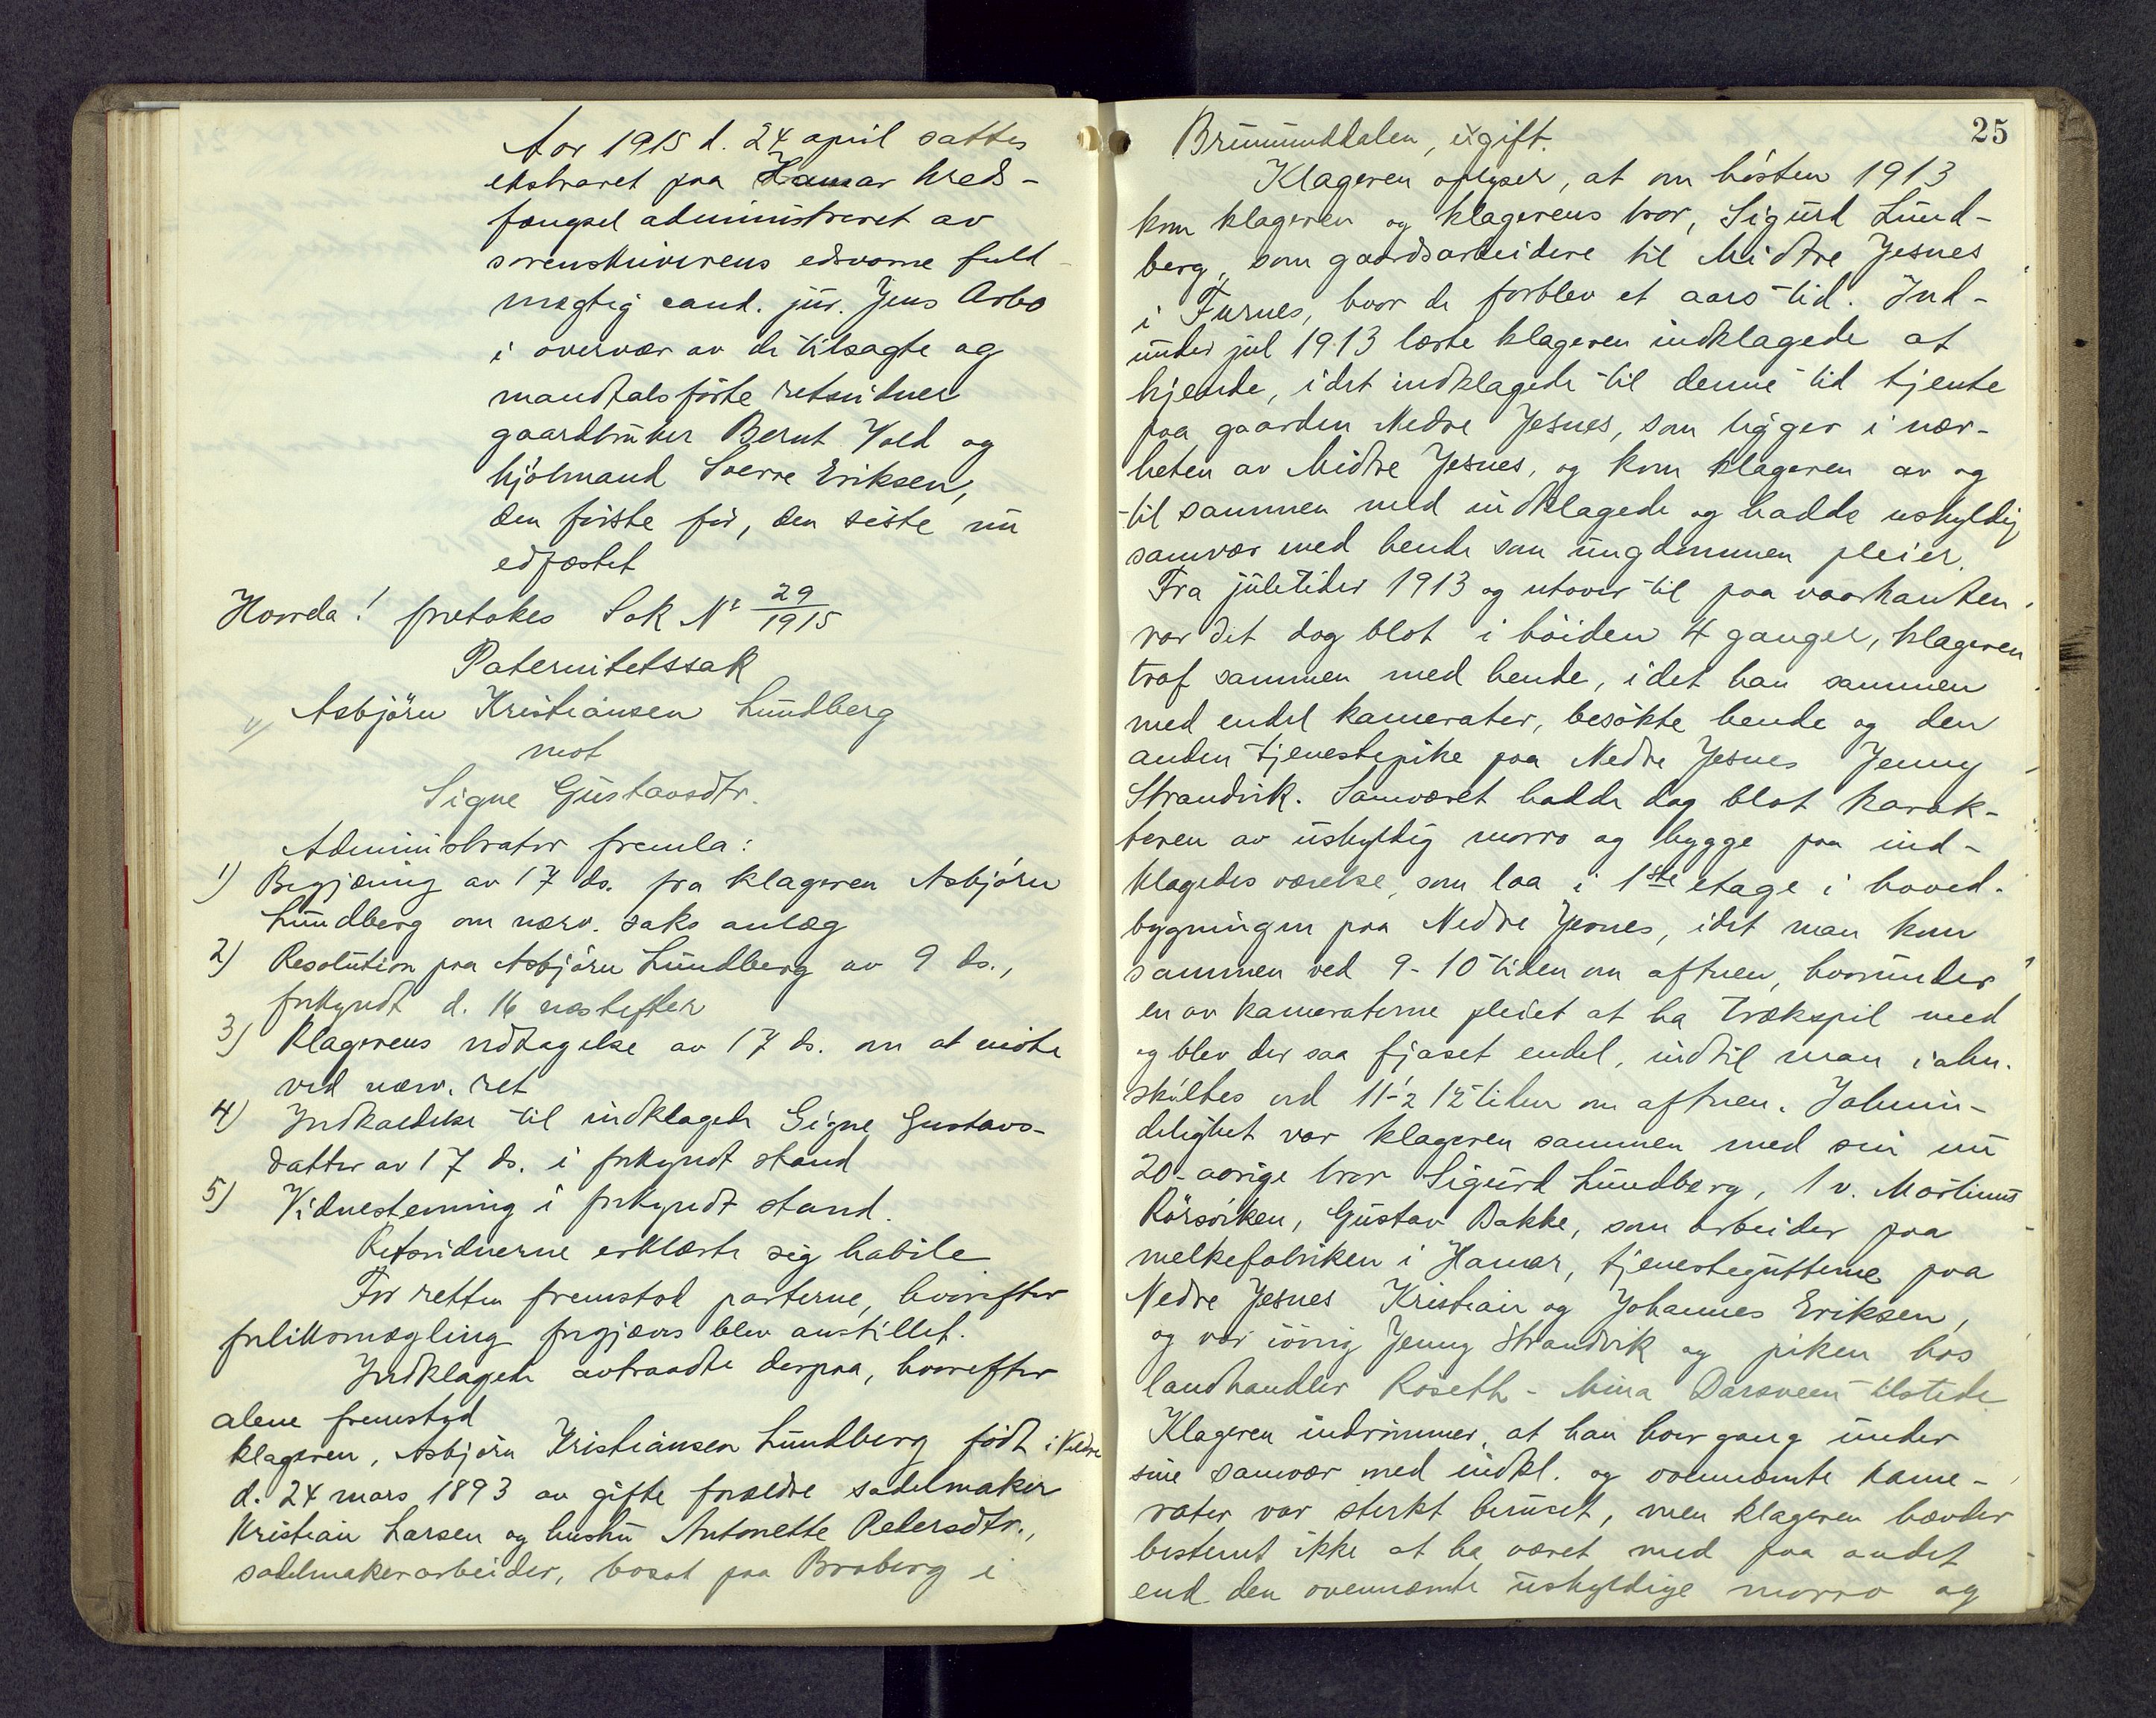 Aar 1915 d. 24 april sattes
ekstraret paa Hamar kreds-
fængsel administreret av
sorenskriverens edsvorne fuld-
mægtig cand. jur. Jens Arbo
i overvær av de tilsagte og
mandtalsførte retsvidner
gaardbruker Bernt Vold og
hjølmand Sverre Eriksen,
den første før, den siste nu
edfæstet
Hvorda! foretokes Sak No 29/1915
Paternitetssak
Asbjörn Kristiansen Lundberg
mot
Signe Gustavsdtr.
Administrator fremla:
1) Begjæring av 17 ds. fra klageren Asbjörn
Lundberg om nærv. saks anlæg
2) Resolution paa Asbjörn Lundberg av 9 ds.,
forkyndt d. 16 næstefter
3) Klagerens vedtagelse av 17 ds. om at møte
ved nærv. ret
4) Indkaldelse til indklagede Signe Gustavs-
datter av 17 ds. i forkyndt stand
5) Vidnestevning i forkyndt stand.
Retsvidnerne erklærte sig habile
For retten fremstod parterne, hvorefter
forliksmægling forgjæves blev anstillet.
Indklagede avtraadte derpaa, hvorefter
alene fremstod
klageren, Asbjørn Kristiansen Lundberg født i Veldre
d. 24 mars 1893 av gifte forældre sadelmaker
Kristian Larsen og hustru Antonette Pedersdtr.,
sadelmakerarbeider, bosat paa Broberg i
25
Brummunddalen, ugift.
Klageren oplyser, at om høsten 1913
kom klageren og klagerens bror, Sigurd Lund-
berg, som gaardsarbeidere til Midtre Jesnes
i Furnes, hvor de forblev et aars tid. Ind-
under jul 1913 lærte klageren indklagede at
kjende, idet indklagede til denne tid tjente
paa gaarden Nedre Jesnes, som ligger i nær-
heten av Midtre Jesnes, og kom klageren av og
til sammen med indklagede og hadde uskyldig
samvær med hende som ungdommen pleier.
Fra juletider 1913 og utover til paa vaarkanten
var det dog blot i høiden 4 ganger, klageren
traf sammen med hende, idet han sammen
med endel kamerater, besøkte hende og den
anden tjenestepike paa Nedre Jesnes Jenny
Strandvik. Samværet hadde dog blot karak-
teren av uskyldig morro og hygge paa ind-
klagedes værelse, som laa i 1ste etage i hoved-
bygningen paa Nedre Jesnes, idet man kom
sammen ved 9-10 tiden om aftnen, hvorunder
en av kameraterne pleiet at ha trækspil med
og blev der saa fjaset endel, indtil man i alm.
skiltes ved 11½ 12 tiden om aftnen. I almin-
delighet var klageren sammen med sin nu
20-aarige bror Sigurd Lundberg, 1 v. Martinus
Rörsviken, Gustav Bakke, som arbeider paa
melkefabriken i Hamar, tjenestegutterne paa
Nedre Jesnes Kristian og Johannes Eriksen,
og var iøvrig Jenny Strandvik og piken hos
landhandler Røseth - Mina Darsveen tilstede
Klageren indrømmer, at han hver gang under
sine samvær med indkl. og ovennævnte kame-
rater var sterkt beruset, men klageren hævder
bestemt ikke at ha været med paa andet
end den ovennævnte uskyldige morro og